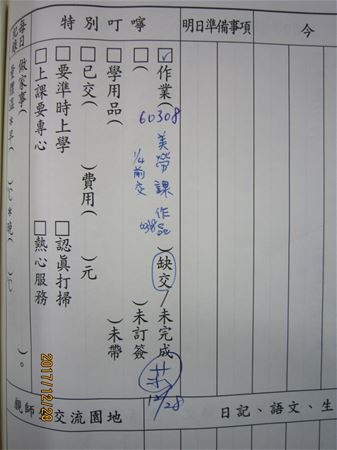 今
明日準備事項
特別叮嚀
☑作業(60308美勞課作品)缺交/未完成
1/4前交
莊
12/28
□( )未訂簽
□學用品( )未帶
□已交( )費用( )元
□要準時上學 □認真打掃
□上課要專心 □熱心服務
每日
做家事( )。
量體溫*早( )℃*晚( )℃
日記、語文、生
親師生交流園地
2017/12/28